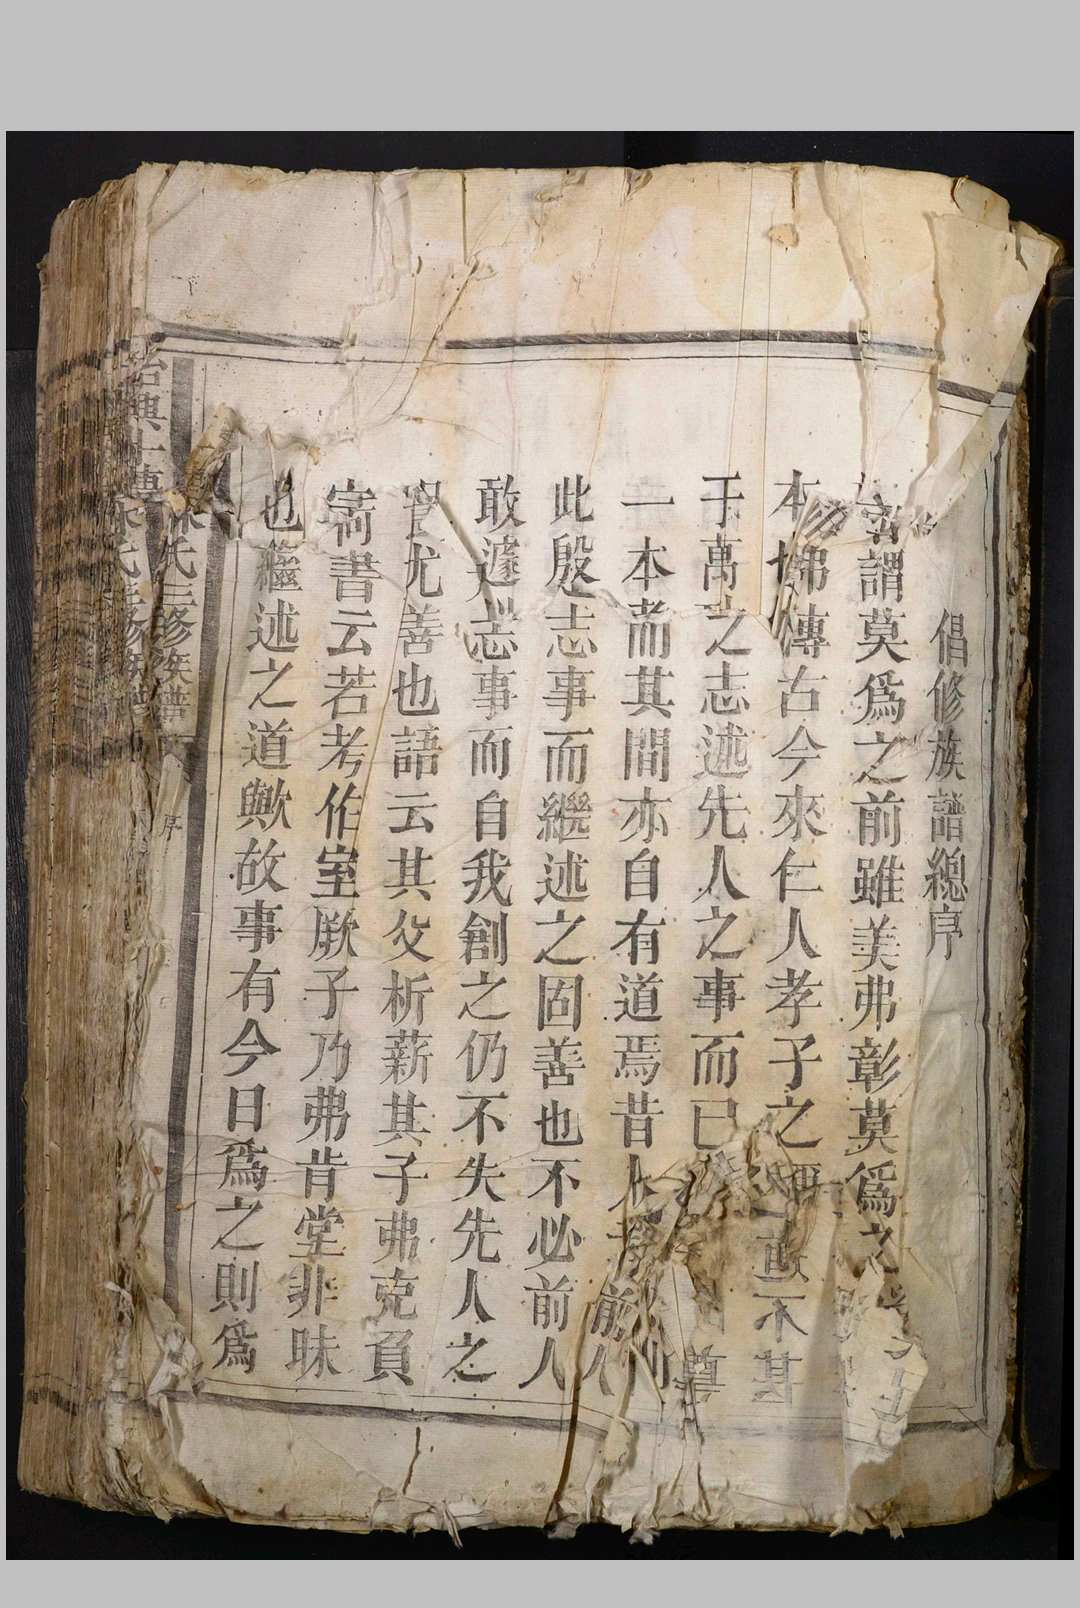 倡修族譜總序
竊謂莫爲之前雖美弗彰莫爲之
本 弗傳古今來仁人孝子之 不甚
于萬 之志述先人之事而已
一本者而其間亦自有道焉昔人 前人
此殷志事而繼述之固善也不必前人
敢遽 志事而自我創之仍不失先人之
尤善也語云其父析薪其子弗克負
荷書云若考作室厥子乃弗肯堂非昧
也繼述之道歟故事有今日爲之則爲
氏三修族譜
序